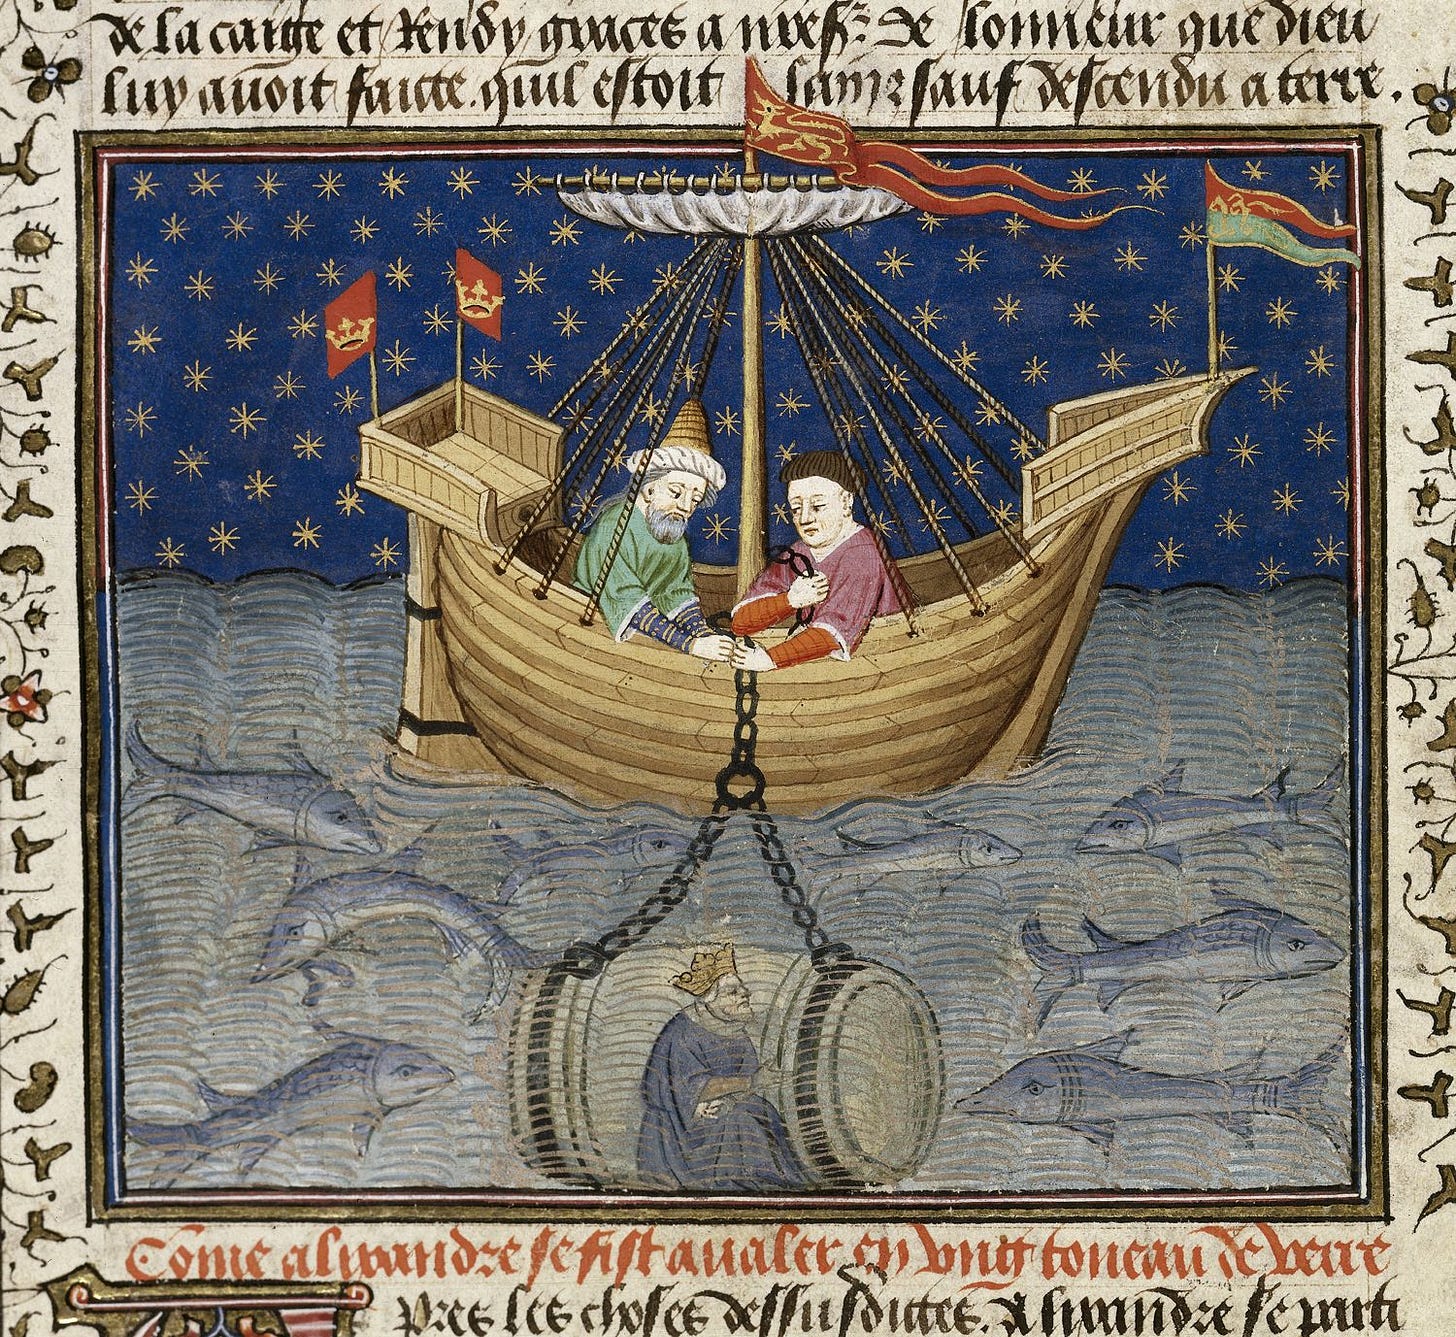 de la caige et Rendy graces a nres2 de lonneur que dieu
luy auoit faicte. quil estoit sain & sauf descendu a terre.
Come alixandre se fist aualer en vng tonneau de verre
Apres les choses dessusdictes. Alixandre se parti